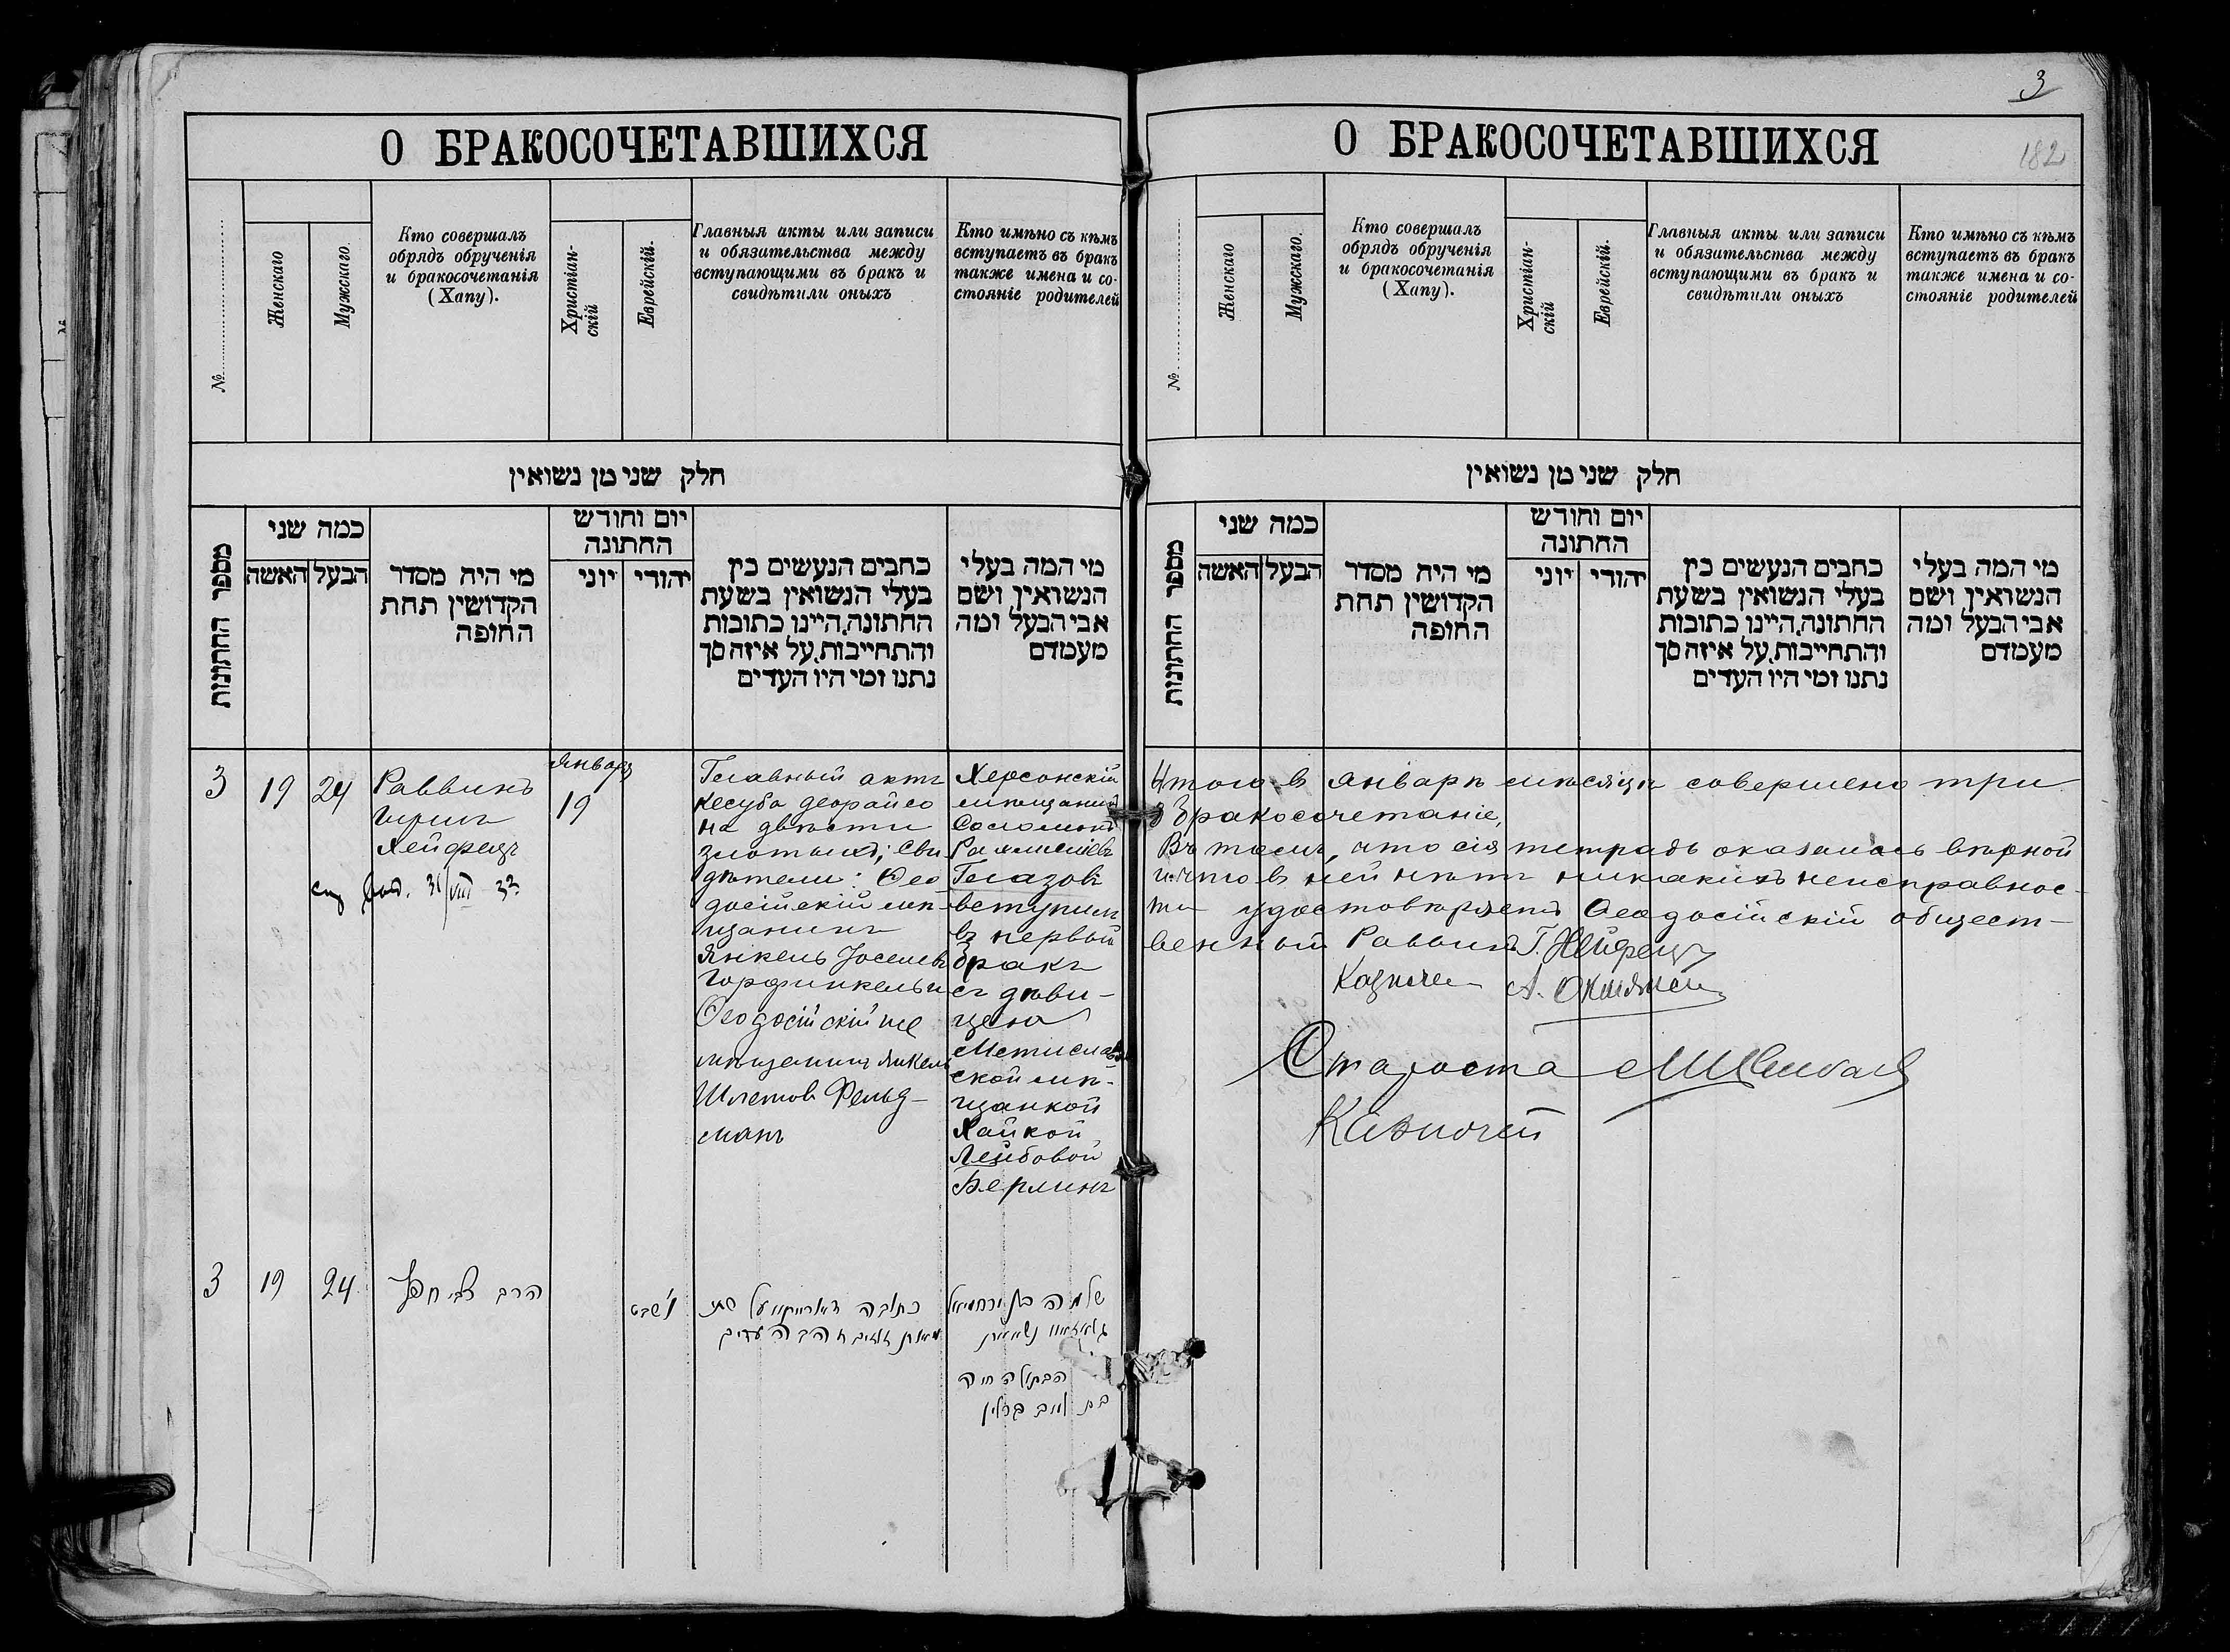 О БРАКОСОЧЕТАВШИХСЯ
№
Женскаго
Мужскаго.
Кто совершалъ
обрядъ обрученія
и бракосочетанія
(Хапу).
Христіан-
скій
Еврейскій.
Главныя акты или записи
и обязательства между
вступающими въ бракъ и
свидѣтили оныхъ
Кто имѣно съ кѣмъ
вступаетъ въ бракъ
также имена и со-
стояніе родителей
חלק שני מן נשואין
מספר החתונות
כמה שני
האשה
הבעל
מי היה מסדר
הקדושין תחת
החופה
יום וחודש
החתונה
יוני
יהודי
כתבים הנעשים בין
בעלי הנשואין בשעת
החתונה, היינו כתובות
והתחייבות, על איזה סך
נתנו ומי היו העדים
מי המה בעלי
הנשואין ושם
אבי הבעל ומה
מעמדם
3
19
24
Раввинъ
Гиршъ
Хейфецъ
31/VIII 33
Января
19
Главный актъ
кесуба деорайсо
на двѣсти
злотыхъ; Сви
дѣтели: Ѳео
досійскій мѣ-
щанинъ
Янкель Іоселевъ
Горфинкель и
Ѳеодосійскій же
мѣщанинъ Янкель
Шлемов Фельд-
манъ
Херсонскій
мѣщанинъ
Соломонъ
Рахмиелевъ
Глазовъ
вступилъ
въ первый
бракъ
съ дѣви-
цею
Мстислав
ской мѣ-
щанкой
Хайкой
Лейбовой
Берлинъ
3
19
24
הרב צבי חפץ
ו' שבט
כתובה דאורייתא על שתי
מאות זוזים העדים
שלמה בן ירחמיאל
גלאזאוו נשא את
הבתולה חיה
בת לייב ברלין
3
182
О БРАКОСОЧЕТАВШИХСЯ
№
Женскаго
Мужскаго.
Кто совершалъ
обрядъ обрученія
и бракосочетанія
(Хапу).
Христіан-
скій
Еврейскій.
Главныя акты или записи
и обязательства между
вступающими въ бракъ и
свидѣтили оныхъ
Кто имѣно съ кѣмъ
вступаетъ въ бракъ
также имена и со-
стояніе родителей
חלק שני מן נשואין
מספר החתונות
כמה שני
האשה
הבעל
מי היה מסדר
הקדושין תחת
החופה
יום וחודש
החתונה
יוני
יהודי
כתבים הנעשים בין
בעלי הנשואין בשעת
החתונה, היינו כתובות
והתחייבות, על איזה סך
נתנו ומי היו העדים
מי המה בעלי
הנשואין ושם
אבי הבעל ומה
מעמדם
Итого въ январѣ мѣсяцѣ совершено три
3 бракосочетанія,
Въ томъ, что сія тетрадь оказалась вѣрной
и что въ ней нѣтъ никакихъ неисправнос-
ти удостовѣряетъ Ѳеодосійскій общест-
венный Раввинъ Г. Хейфецъ
Казначей А.
Староста
Казначей